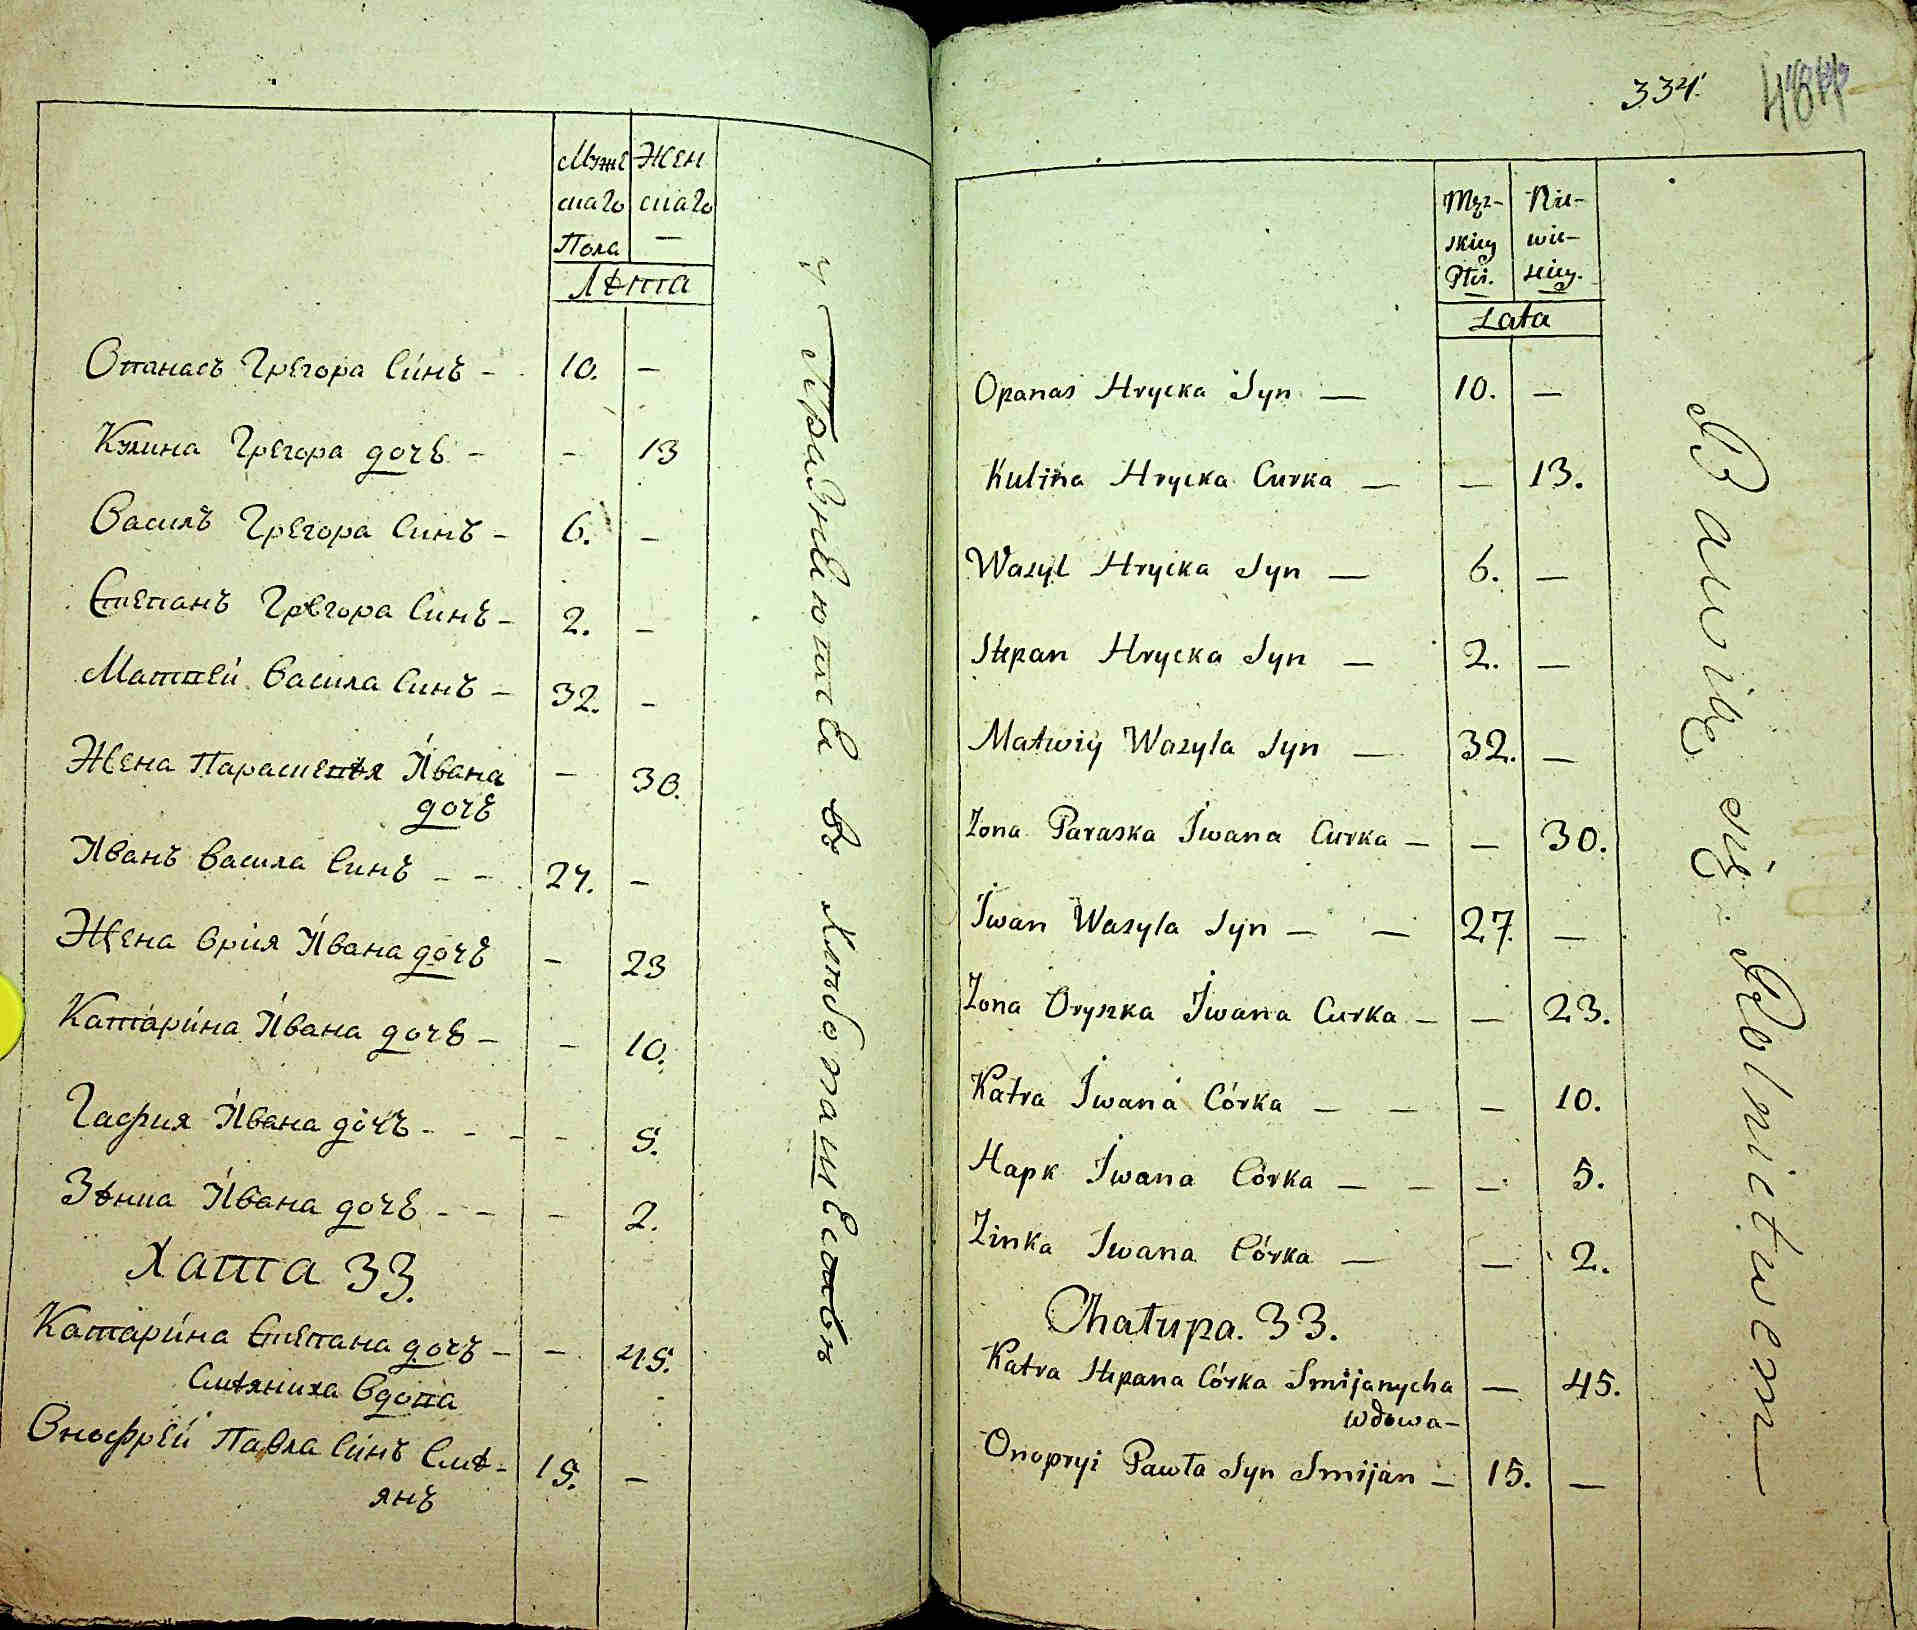 Муже Жен
скаго скаго
Пола —
Лѣта
Опанасъ Грегора Синъ - 10. —
Кулина Грегора дочъ - - 13
Василъ Грегора Синъ - 6. —
Степанъ Грегора Синъ - 2. —
Маттей Васила Синъ - 32. —
Жена Параскевія Ивана — 30.
дочъ
Иванъ Васила Синъ - - 27. —
Жена Ория Ивана дочъ — 23
Катарина Ивана дочъ - — 10.
Гафия Ивана дочъ - - - — 5.
Зѣнка Ивана дочъ - - — 2.
Хата 33.
Катарина Степана дочъ - — 45.
Смѣяниха Вдова
Онофрей Павла Синъ Смѣ- 15. —
янъ
Упражняются въ Хлѣбопашествѣ
334.
484
Męz- Nie-
skiey wie-
Płci. sciey.
Lata
Opanas Hrycka Syn — 10. —
Kulina Hrycka Curka — — 13.
Wasyl Hrycka Syn — 6. —
Stepan Hrycka Syn — 2. —
Matwiy Wasyla Syn — 32. —
Zona Paraska Iwana Curka — — 30.
Iwan Wasyla Syn — — 27. —
Zona Oryszka Iwana Curka — — 23.
Katra Iwana Córka — — — 10.
Hapk Iwana Córka — — — 5.
Zinka Iwana Córka — — 2.
Chatupa. 33.
Katra Stepana Córka Smijanycha — 45.
wdowa —
Onopryi Pawła Syn Smijan — 15. —
Bawią się Rolnictwem